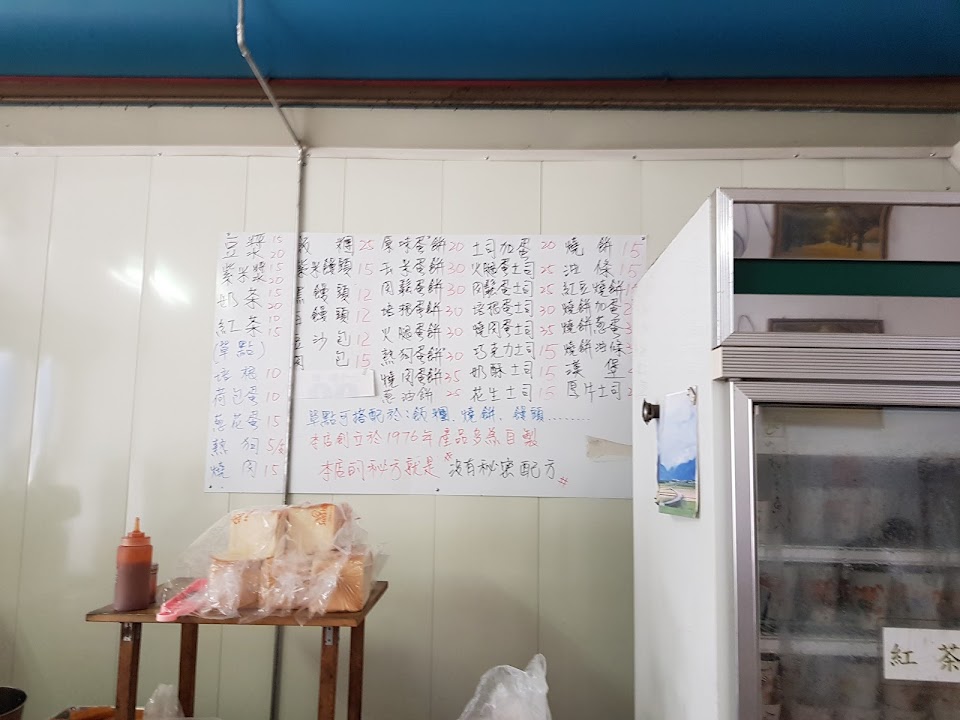 豆漿 15 20
紫米漿 15 20
奶茶 15 20
紅茶 10 15
(單點)
培根 10
荷包蛋 10
蔥花蛋 15
熱狗
燒肉 15
飯糰 25
紫米饅頭 15
黑饅頭 12
豆饅頭 12
豆沙包 12
肉包 15
原味蛋餅 20
玉米蛋餅 30
肉鬆蛋餅 30
培根蛋餅 30
火腿蛋餅 30
熱狗蛋餅 30
燒肉蛋餅 35
蔥油餅 25
土司加蛋 20
火腿蛋土司 25
肉鬆蛋土司 25
培根蛋土司 25
燒肉蛋土司 35
巧克力土司 15
奶酥土司 15
花生土司 15
燒餅 15
油條 15
紅豆燒餅
燒餅加蛋
燒餅蔥蛋
燒餅油條
漢堡
厚片土司
單點可搭配於:飯糰、燒餅、饅頭.........
本店創立於1976年產品多為自製
本店的秘方就是"沒有秘密配方"
紅茶